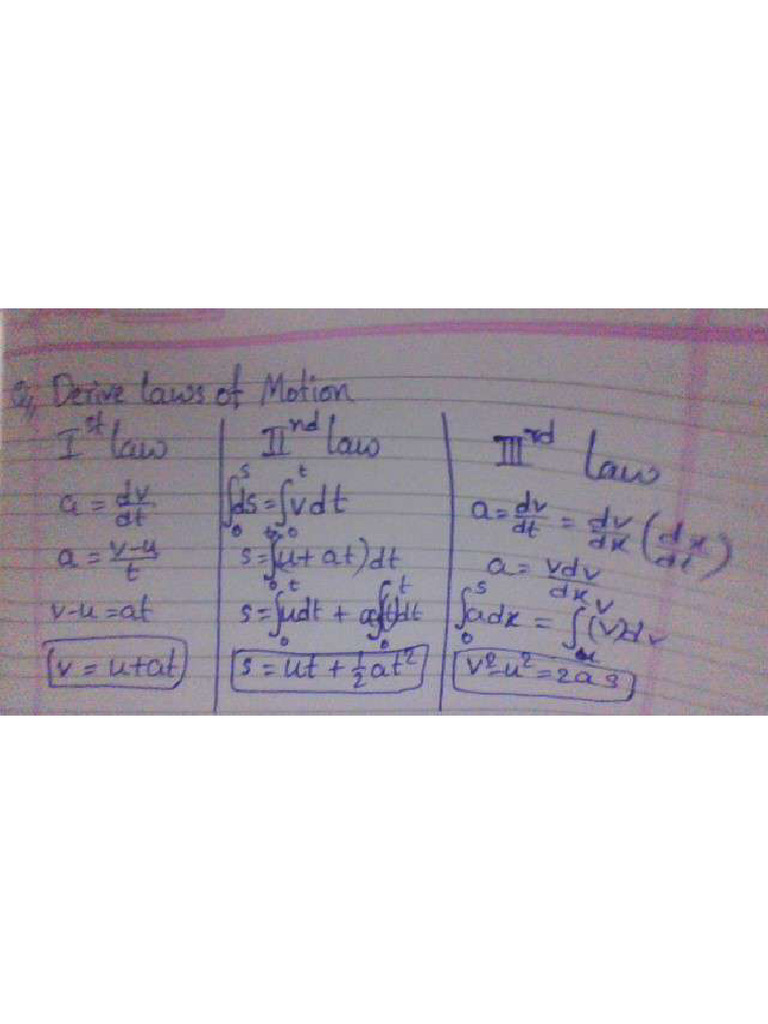 Q, Derive laws of Motion
Ist law
a = dv/dt
a = v-u/t
v-u = at
v = u+at
IInd law
∫₀ˢ ds = ∫₀ᵗ v dt
s = ∫₀ᵗ (u + at) dt
s = ∫₀ᵗ u dt + a∫₀ᵗ t dt
s = ut + 1/2 at²
IIIrd law
a = dv/dt = dv/dx (dx/dt)
a = vdv/dx
∫₀ˢ a dx = ∫ᵤᵛ (v) dv
v² - u² = 2as